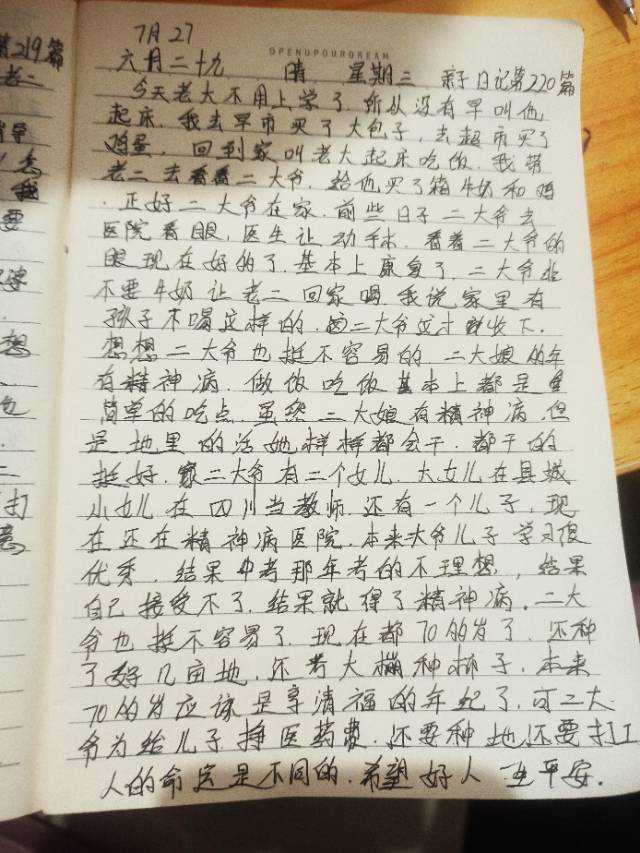 第219篇
老二
要
想
打
7月27
OPENUPOURDREAM
六月二十九 晴 星期三 亲子日记第220篇
今天老大不用上学了,所以没有早叫他
起床.我去早市买了大包子,去超市买了
鸡蛋,回到家叫老大起床吃饭.我带
老二去看看二大爷,给他买了箱牛奶和鸡
.正好二大爷在家.前些日子二大爷去
医院看眼,医生让动手术.看着二大爷的
眼现在好的了.基本上康复了.二大爷非
不要牛奶让老二回家喝.我说家里有
孩子不喝这样的.二大爷这才收下.
想想二大爷也挺不容易的.二大娘的年
有精神病.做饭吃饭基本上都是
简单的吃点.虽然二大娘有精神病.但
是地里的活她样样都会干.都干的
挺好.二大爷有二个女儿.大女儿在县城
小女儿在四川当教师.还有一个儿子,现
在还在精神病医院.本来大爷儿子学习很
优秀.结果中考那年考的不理想,结果
自己接受不了.结果就得了精神病.二大
爷也挺不容易了.现在都70的岁了.还种
了好几亩地.还有大棚种柿子.本来
70的岁应该是享清福的年纪了.可二大
爷为给儿子挣医药费.还要种地还要打工
人的命运是不同的.希望好人一生平安.